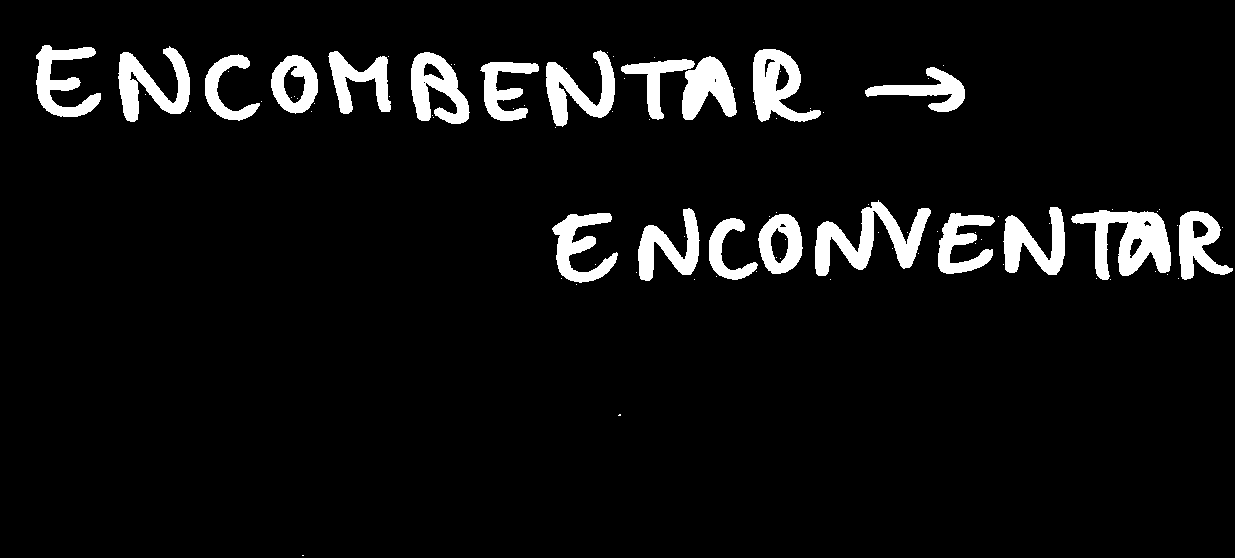 ENCOMBENTAR →
ENCONVENTAR